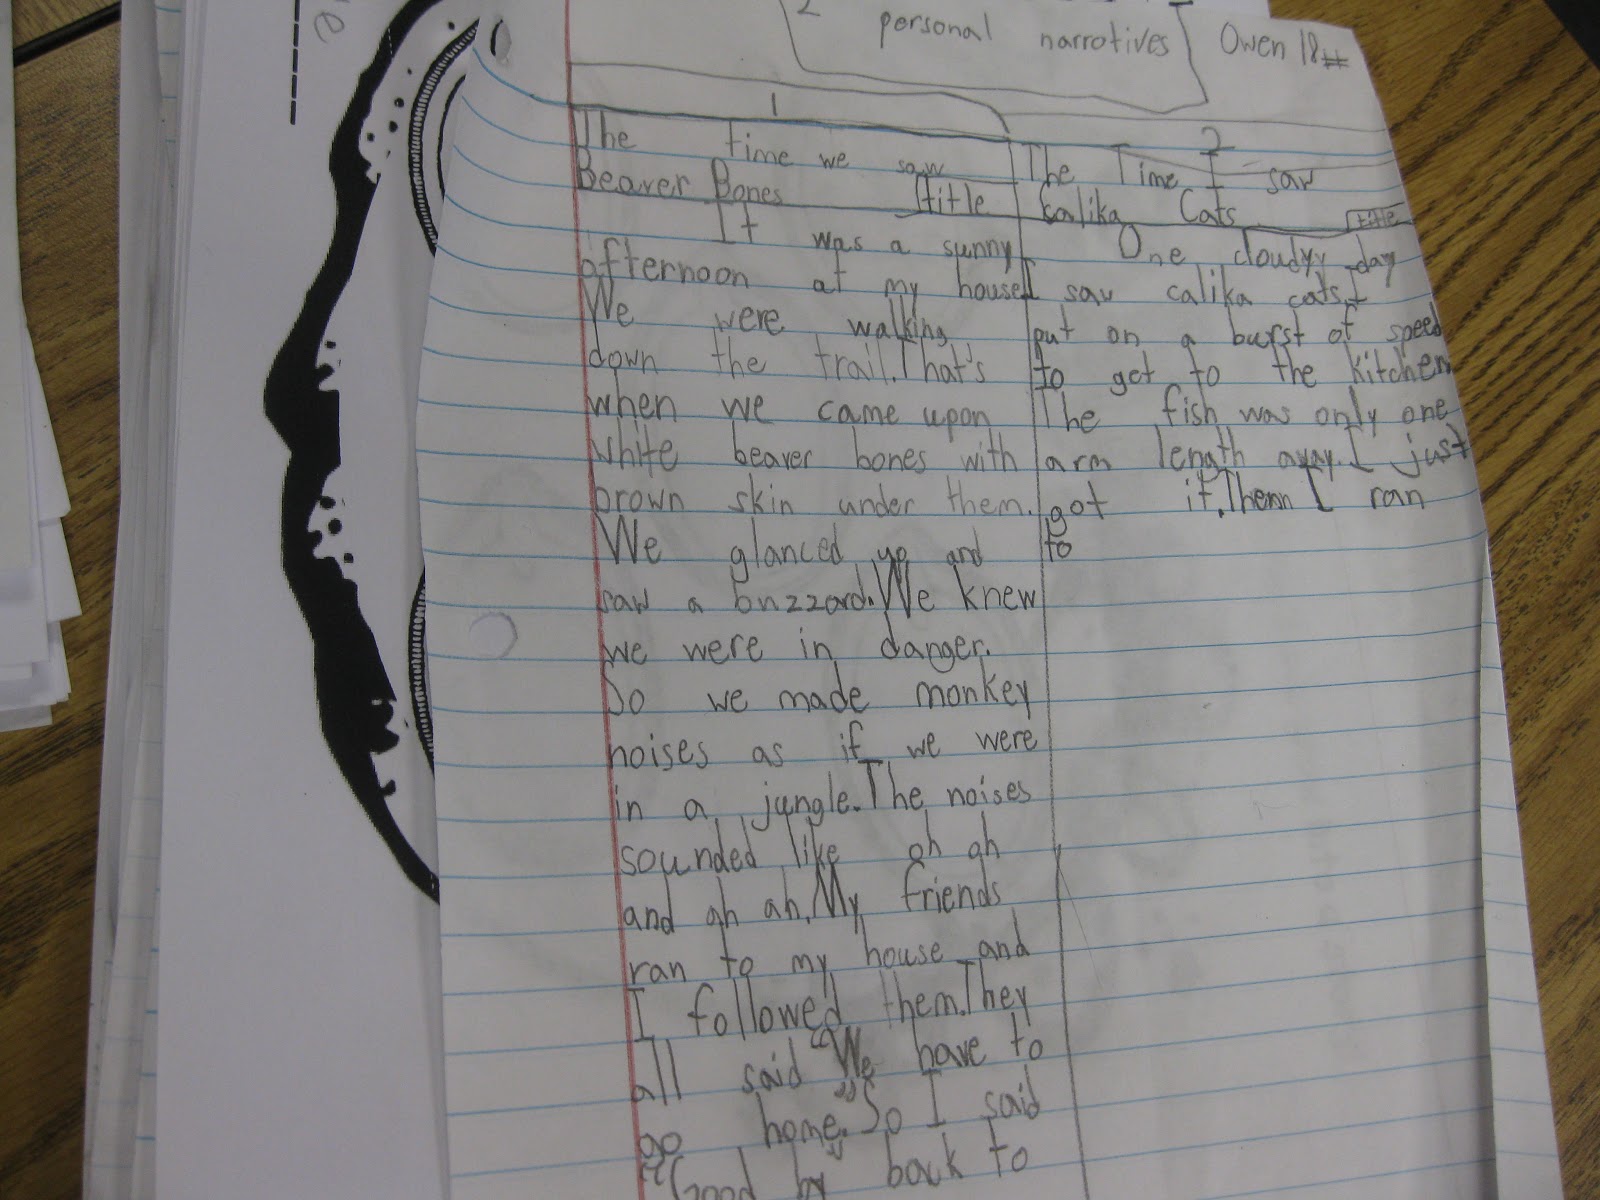 2 personal narrotives
Owen 18#
1
The time we saw
Beaver Bones title
It was a sunny
afternoon at my house
We were walking
down the trail. That's
when we came upon
white beaver bones with
brown skin under them.
We glanced up and
saw a buzzard. We knew
we were in danger.
So we made monkey
noises as if we were
in a jungle. The noises
sounded like oh ah
and ah ah. My friends
ran to my house and
I followed them. They
all said "We have to
go home." So I said
"Good by" back to
2
The Time I saw
Calika Cats title
One cloudyy day
I saw calika cats. I
put on a burst of speed
to get to the kitchen
The fish was only one
arm length away. I just
got it. Thenn I ran
to